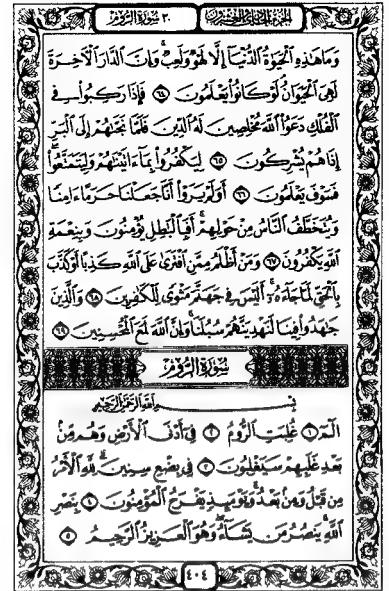 الجزء الحادي والعشرون
٣٠ سورة الروم
وَمَا هَٰذِهِ ٱلْحَيَوٰةُ ٱلدُّنْيَآ إِلَّا لَهْوٌ وَلَعِبٌ ۚ وَإِنَّ ٱلدَّارَ ٱلْءَاخِرَةَ
لَهِىَ ٱلْحَيَوَانُ ۚ لَوْ كَانُوا۟ يَعْلَمُونَ ٦٤ فَإِذَا رَكِبُوا۟ فِى
ٱلْفُلْكِ دَعَوُا۟ ٱللَّهَ مُخْلِصِينَ لَهُ ٱلدِّينَ فَلَمَّا نَجَّىٰهُمْ إِلَى ٱلْبَرِّ
إِذَا هُمْ يُشْرِكُونَ ٦٥ لِيَكْفُرُوا۟ بِمَآ ءَاتَيْنَٰهُمْ وَلِيَتَمَتَّعُوا۟ ۖ
فَسَوْفَ يَعْلَمُونَ ٦٦ أَوَلَمْ يَرَوْا۟ أَنَّا جَعَلْنَا حَرَمًا ءَامِنًا
وَيُتَخَطَّفُ ٱلنَّاسُ مِنْ حَوْلِهِمْ ۚ أَفَبِٱلْبَٰطِلِ يُؤْمِنُونَ وَبِنِعْمَةِ
ٱللَّهِ يَكْفُرُونَ ٦٧ وَمَنْ أَظْلَمُ مِمَّنِ ٱفْتَرَىٰ عَلَى ٱللَّهِ كَذِبًا أَوْ كَذَّبَ
بِٱلْحَقِّ لَمَّا جَآءَهُۥٓ ۚ أَلَيْسَ فِى جَهَنَّمَ مَثْوًى لِّلْكَٰفِرِينَ ٦٨ وَٱلَّذِينَ
جَٰهَدُوا۟ فِينَا لَنَهْدِيَنَّهُمْ سُبُلَنَا ۚ وَإِنَّ ٱللَّهَ لَمَعَ ٱلْمُحْسِنِينَ ٦٩
سورة الروم
بِسْمِ ٱللَّهِ ٱلرَّحْمَٰنِ ٱلرَّحِيمِ
الٓمٓ ١ غُلِبَتِ ٱلرُّومُ ٢ فِىٓ أَدْنَى ٱلْأَرْضِ وَهُم مِّنۢ
بَعْدِ غَلَبِهِمْ سَيَغْلِبُونَ ٣ فِى بِضْعِ سِنِينَ ۗ لِلَّهِ ٱلْأَمْرُ
مِن قَبْلُ وَمِنۢ بَعْدُ ۚ وَيَوْمَئِذٍ يَفْرَحُ ٱلْمُؤْمِنُونَ ٤ بِنَصْرِ
ٱللَّهِ ۚ يَنصُرُ مَن يَشَآءُ ۖ وَهُوَ ٱلْعَزِيزُ ٱلرَّحِيمُ ٥
٤٠٤